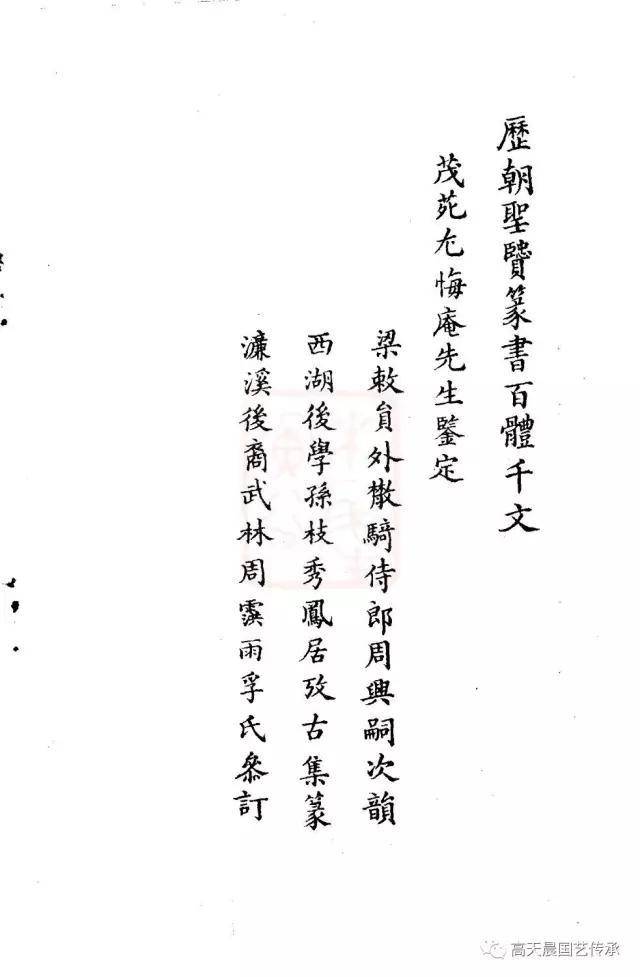 歷朝聖賢篆書百體千文
茂苑尤悔庵先生鑒定
梁敕員外散騎侍郎周興嗣次韻
西湖後學孫枝秀鳳居攷古集篆
濂溪後裔武林周霙雨孚氏叅訂
高天晨国艺传承